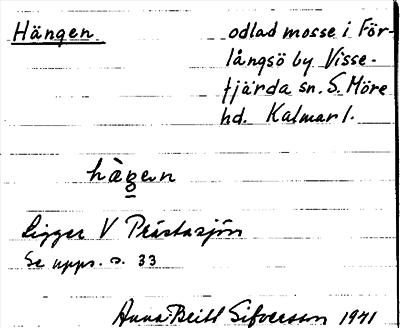 Hängen odlad mosse i För-
långsö by Visse-
fjärda sn. S. Möre
hd. Kalmar l.
hàŋen
Ligger V Prästasjön
Se upps. s. 33
Anna-Britt Sifversson 1971